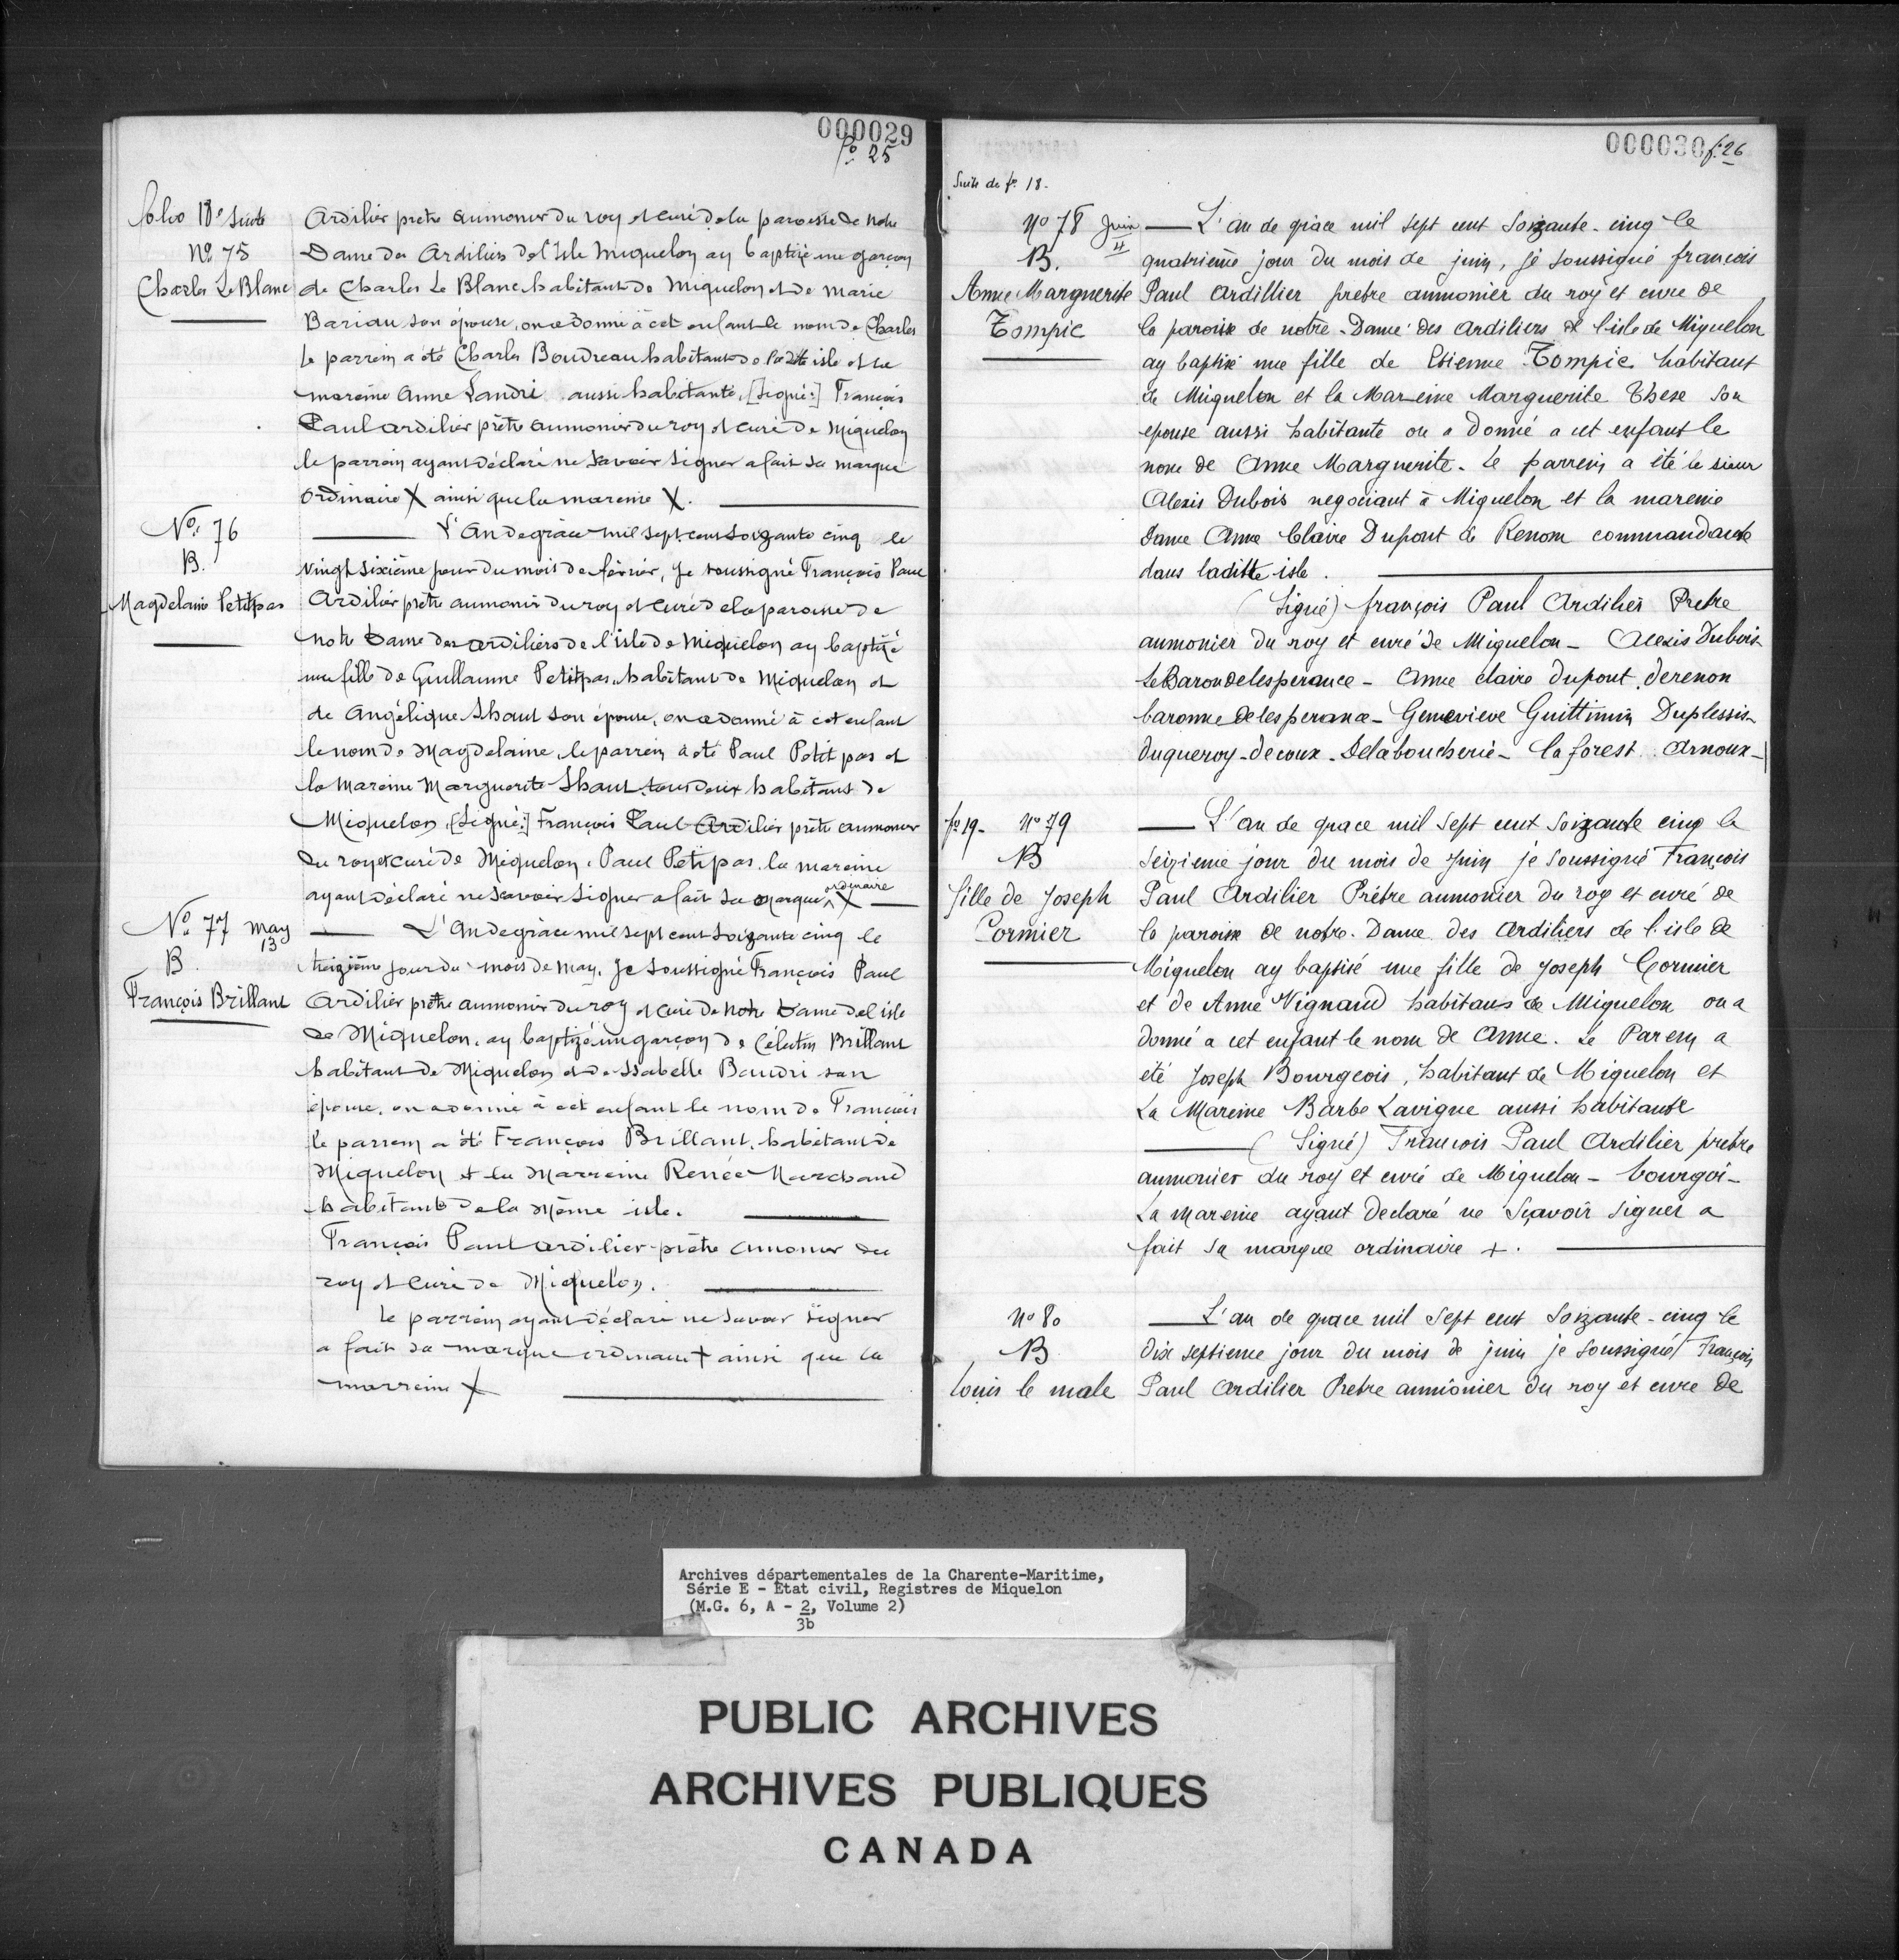 000029
fo. 25
folio 18e Suite
No 75
Charles LeBlanc
Ardilier pretre aumonier du roy et curé de la paroisse de Notre
Dame des Ardiliers de l'Isle Miquelon ay baptizé un garçon
de Charles Le Blanc habitant de Miquelon et de Marie
Bariau son épouse, on a donné à cet enfant le nom de Charles
le parrein a été Charles Boudreau habitant de la ditte isle et la
mareine Anne Landri aussi habitante, [Signé:] François
Paul Ardilier prêtre aumonier du roy et curé de Miquelon
le parrein ayant déclaré ne savoir signer a fait sa marque
ordinaire X ainsi que la mareine X.
No. 76
B.
Magdelaine Petitpas
L'An de grâce mil sept cent soizante cinq le
vingt sixième jour du mois de février, je soussigné François Paul
Ardilier prêtre aumonier du roy et curé de la paroisse de
notre Dame des ardiliers de l'isle de Miquelon ay baptizé
une fille de Guillaume Petitpas habitant de Miquelon et
de Angélique Shaut son épouse, on a donné à cet enfant
le nom de Magdelaine, le parrein a été Paul Petit pas et
la Mareine Marguerite Shaut tous deux habitans de
Miquelon, [Signé:] François Paul Ardilier prêtre aumonier
du roy et curé de Miquelon. Paul Petipas. la mareine
ayant déclaré ne savoir signer a fait sa marque ordinaire X
No 77 may
13
B.
François Brillant
L'An de grâce mil sept cent soizante cinq le
treizième jour du mois de may. Je soussigné François Paul
Ardilier prêtre aumonier du roy et curé de Notre Dame de l'isle
de Miquelon, ay baptizé un garçon de Célestin Brillant
habitant de Miquelon et de Isabelle Baudri son
épouse, on a donné à cet enfant le nom de François
le parrein a été François Brillant, habitant de
Miquelon et la Marreine Renée Marchand
habitant de la même isle.
François Paul Ardilier prêtre aumonier du
roy et curé de Miquelon.
Le parrein ayant déclaré ne savoir signer
a fait sa marque ordinaire + ainsi que la
marreine X
000030 f. 26
Suite de fo. 18.
No 78 Juin
4
B.
Anne Marguerite
Tompic
L'an de grâce mil sept cent soizante-cinq le
quatrième jour du mois de juin, je soussigné françois
Paul Ardillier pretre aumonier du roy et cure de
la paroisse de notre-Dame des Ardiliers de l'isle de Miquelon
ay baptisé une fille de Etienne Tompic habitant
de Miquelon et la Mareine Marguerite These son
epouse aussi habitante on a donné a cet enfant le
nom de Anne Marguerite. le parrein a été le sieur
Alexis Dubois negociant à Miquelon et la mareine
dame Anne Claire Dupont de Renom commandante
dans laditte isle.
(Signé) françois Paul Ardilier Pretre
aumonier du roy et curé de Miquelon - Alexis Dubois
LeBarondelesperance - Anne claire dupont derenon
baronne delesperance - Genevieve Guittmin Duplessis
duqueroy - decoux - Delaboucherie - la forest. Arnoux -
fo 19. No 79
B
fille de Joseph
Cormier
L'an de grace mil sept cent soizante cinq le
seizieme jour du mois de Juin je soussigné François
Paul Ardilier Prêtre aumonier du roy et curé de
la paroisse de notre-Dame des Ardiliers de l'isle de
Miquelon ay baptisé une fille de Joseph Cormier
et de Anne Vignaud habitans de Miquelon on a
donné a cet enfant le nom de Anne. Le Parein a
été Joseph Bourgeois, habitant de Miquelon et
La Mareine Barbe Lavigne aussi habitante
(Signé) François Paul Ardilier pretre
aumonier du roy et curé de Miquelon - bourgoi -
La mareine ayant declaré ne sçavoir signer a
fait sa marque ordinaire +.
No 80
B
Louis le male
L'an de grace mil sept cent soizante-cinq le
dix septieme jour du mois de juin je soussigné François
Paul Ardilier Pretre aumônier du roy et cure de
Archives départementales de la Charente-Maritime,
Série E - État civil, Registres de Miquelon
(M.G. 6, A - 2, Volume 2)
3b
PUBLIC ARCHIVES
ARCHIVES PUBLIQUES
CANADA